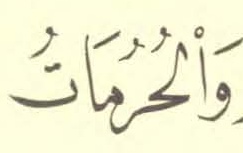 وَاْلْحُرُمَاتُ